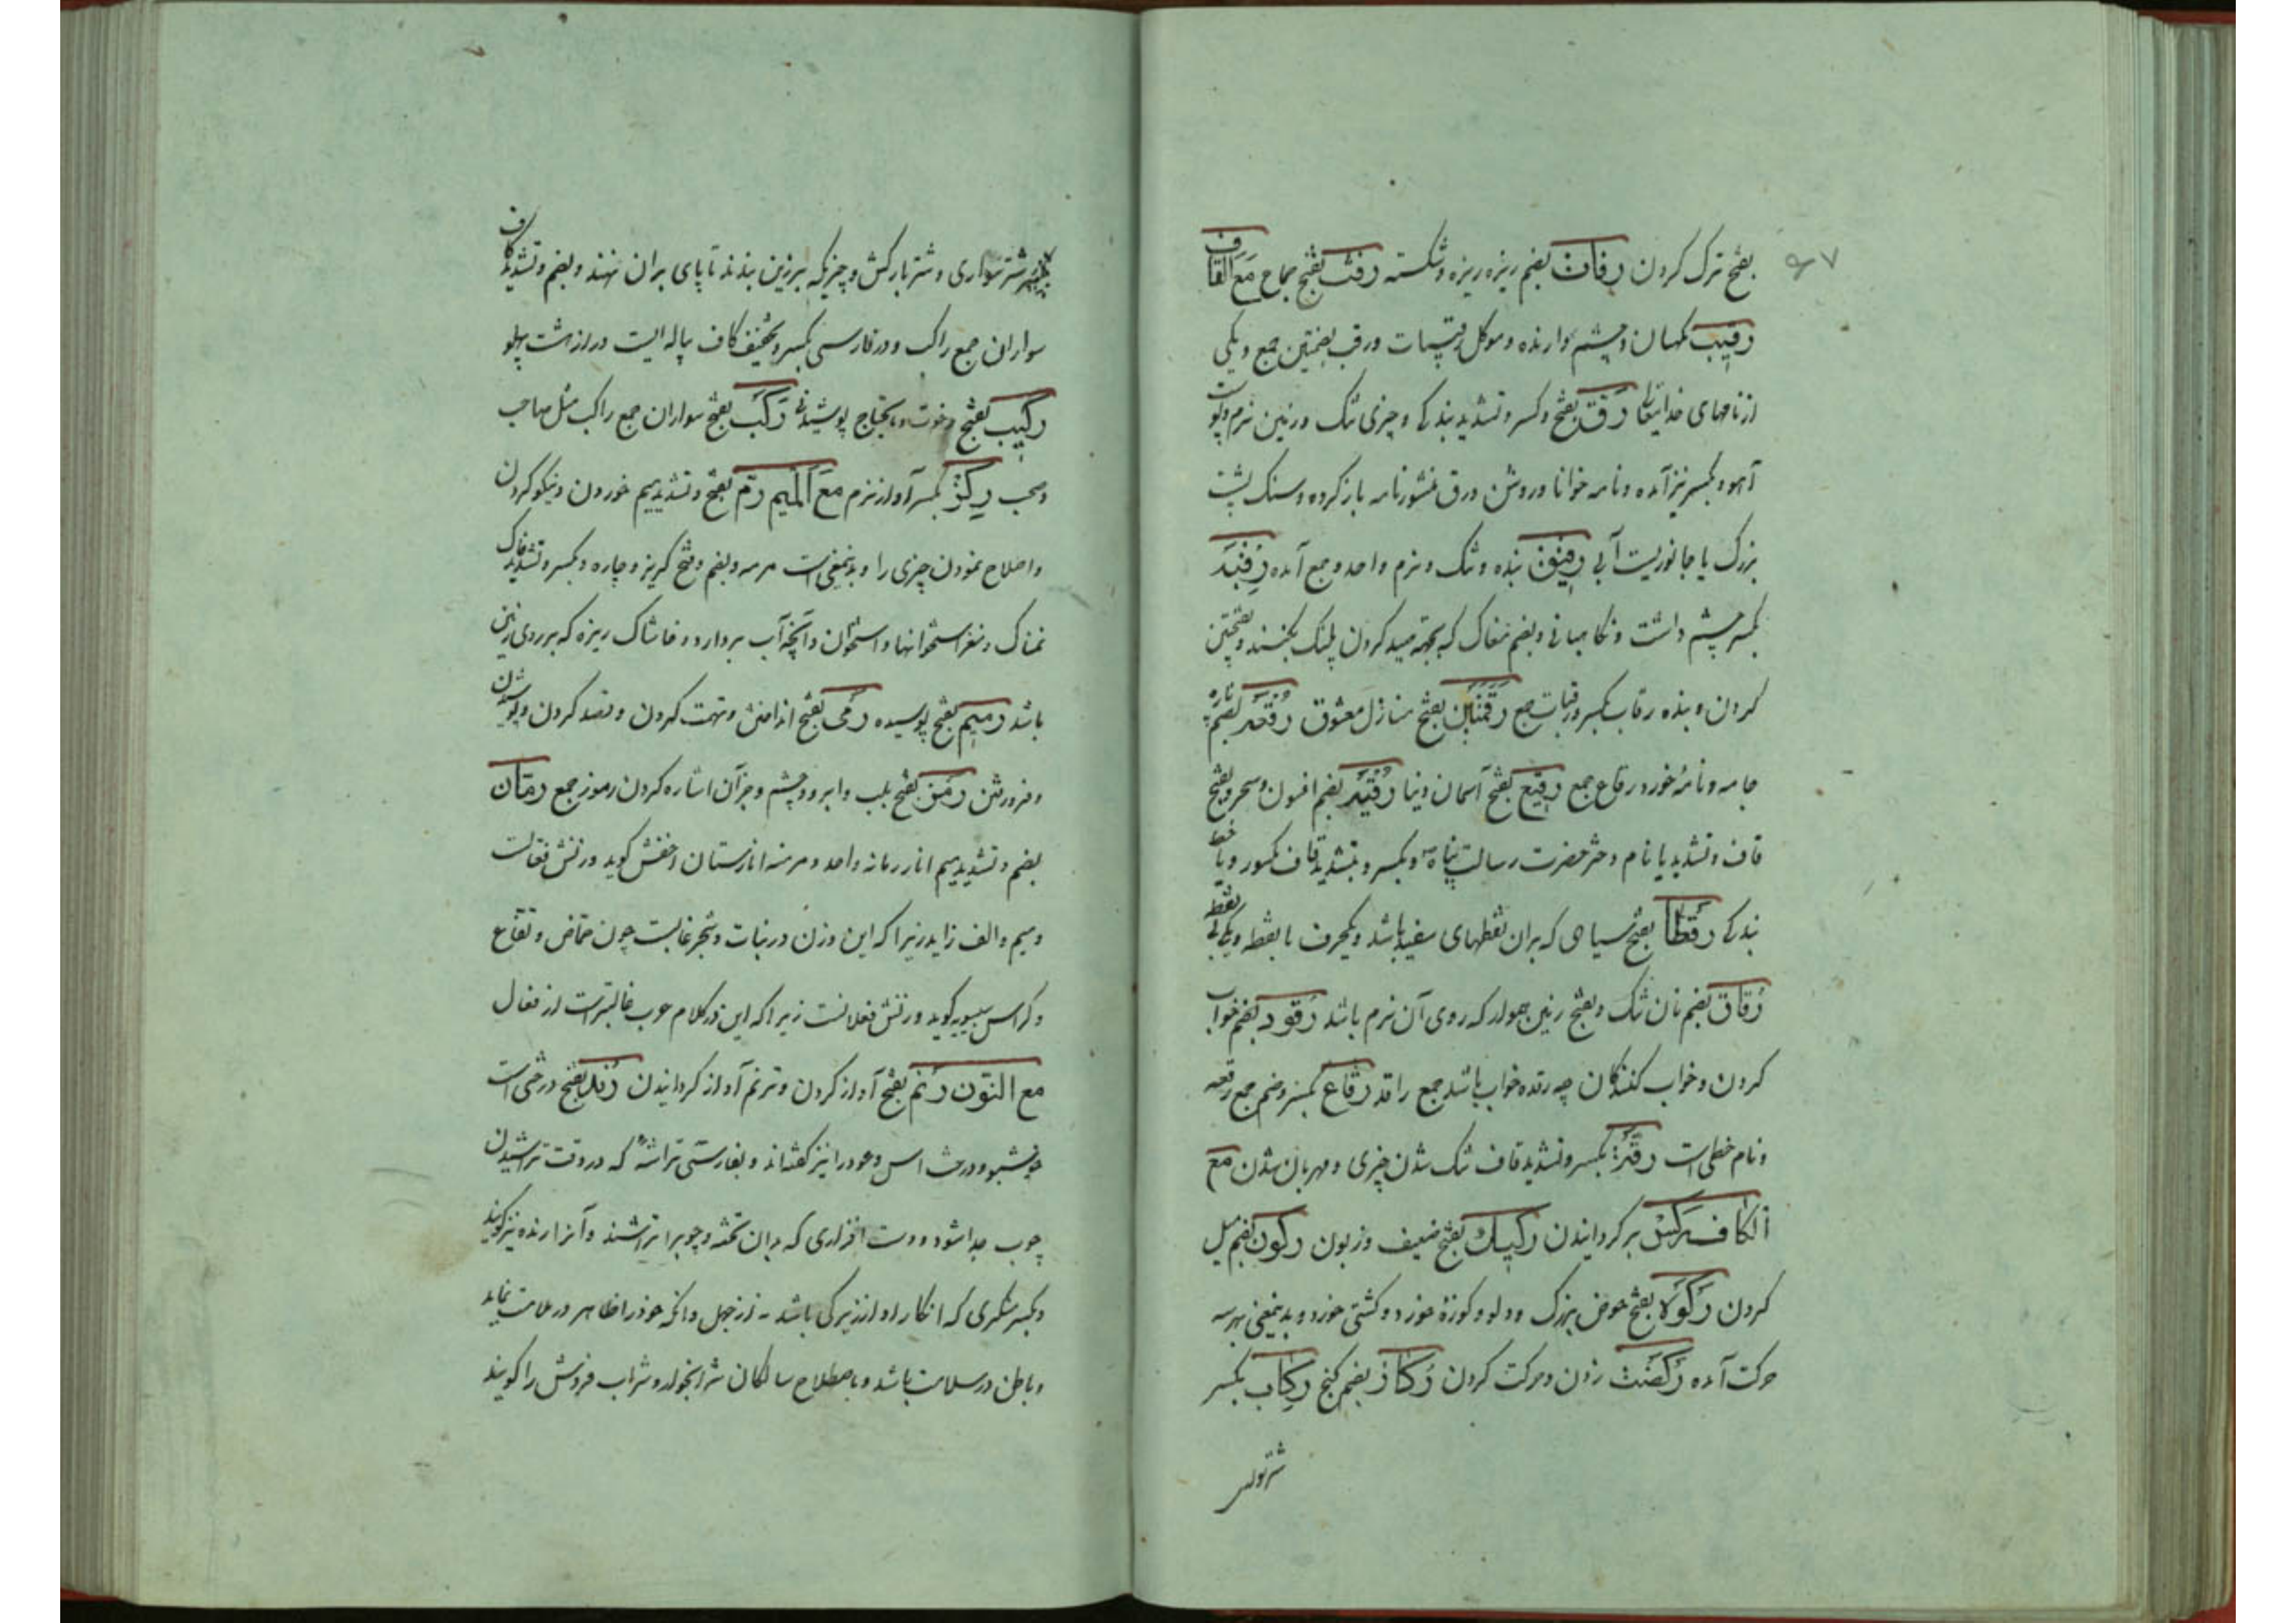 ۹۷
بفتح ترک کردن رفات بضم ریزه ریزه و شکسته رفث بفتح جماع مع القاف
رقیب نگهبان و چشم دارنده و موکل رقیبات و رقب بضمتین جمع و یکی
از نامهای خدایتعالی رق بفتح و کسر و تشدید بندگی و چیزی تنک و زمین نرم و پوست
آهو و بکسر نیز آمده و نامه خوانا و روشن و رق منشور نامه باز کرده و سنک پشت
بزرک یا جانوریست آبی رقیق بنده و تنک و نرم واحد و جمع آمده رقبه
بکسر چشم داشت و نکاهبانی و بضم مغاک که بجهته صید کردن پلنک بکنند و بفتحتین
کردن و بنده رقاب بکسر و رقبات جمع رقمتین بفتح منازل معشوق رقعه بضم پاره
جامه و نامهٔ خورد رقاع جمع رقیع بفتح آسمان دنیا رقیه بضم افسون و سحر و بفتح
قاف و تشدید یا نام دختر حضرت رسالت پناه و بکسر و بتشدید قاف مکسور و یا خط
بندکی رقطا بفتح سیاهی که بران نقطهای سفید باشد و یکحرف با نقطه و یکی بی نقطه
رقاق بضم نان تنک و بفتح زمین هموار که روی آن نرم باشد رقود بضم خواب
کردن و خواب کنندکان چه رقده خواب باشد جمع راقد رقاع بکسر و ضم جمع رقعه
و نام خطی است رقة بکسر و تشدید قاف تنک شدن چیزی و مهربان شدن مع
الکاف رکس برکردانیدن رکیک بفتح ضعیف و زبون رکون بضم میل
کردن رکوه بفتح حوض بزرک و دلو و کوزهٔ خورد و کشتی خورد و بدینمعنی بهر سه
حرکت آمده رکضت زدن و حرکت کردن رکاز بضم کنج رکاب بکسر
شتر سواری و شتر بارکش و چیزیکه برزین بندند تا پای بران نهند و بضم و تشدید کاف
سواران جمع راکب و در فارسی بکسر و تخفیف کاف پیاله ایست دراز هشت پهلو
رکیب بفتح رخوت و مایحتاج پوشیدنی رکب بفتح سواران جمع راکب مثل صاحب
و صحب رکز بکسر آواز نرم مع المیم رم بفتح و تشدید میم خوردن و نیکو کردن
و اصلاح نمودن چیزی را و بدینمعنی است مرمه و بضم و فتح کریز و چاره و بکسر و تشدید خاک
نمناک و مغز استخوانها و استخوان و آنچه آب بردارد و خاشاک ریزه که بر روی زمین
باشد رمیم بفتح پوسیده رمی بفتح انداختن و تهمت کردن و قصد کردن
رمز بفتح بلب و ابرو و چشم و جز آن اشاره کردن رموز جمع رمان
بضم و تشدید میم انار رمانه واحد و مرمنه انارستان اخفش کوید وزنش فعالت
و میم و الف زاید زیرا که این وزن در نبات و شجر غالبست چون حماض و تفاع
و کراس سیبویه کوید وزنش فعلانست زیرا که این در کلام عرب غالبترست از فعال
مع النون رنم بفتح آواز کردن و ترنم آواز کردانیدن رند بفتح درختی است
خوشبو و درخت اس و عود را نیز کفته اند و بفارسی تراشهٔ که در وقت تراشیدن
چوب جدا شود و دست افزاری که بدان تخته و چوبرا تراشند و آنرا رنده نیز کویند
و بکسر منکری که انکار او از زیرکی باشد نه از جهل و انکه خود را ظاهر در ملامت نماید
و باطن در سلامت باشد و باصطلاح سالکان شرابخوار و شراب فروش را کویند